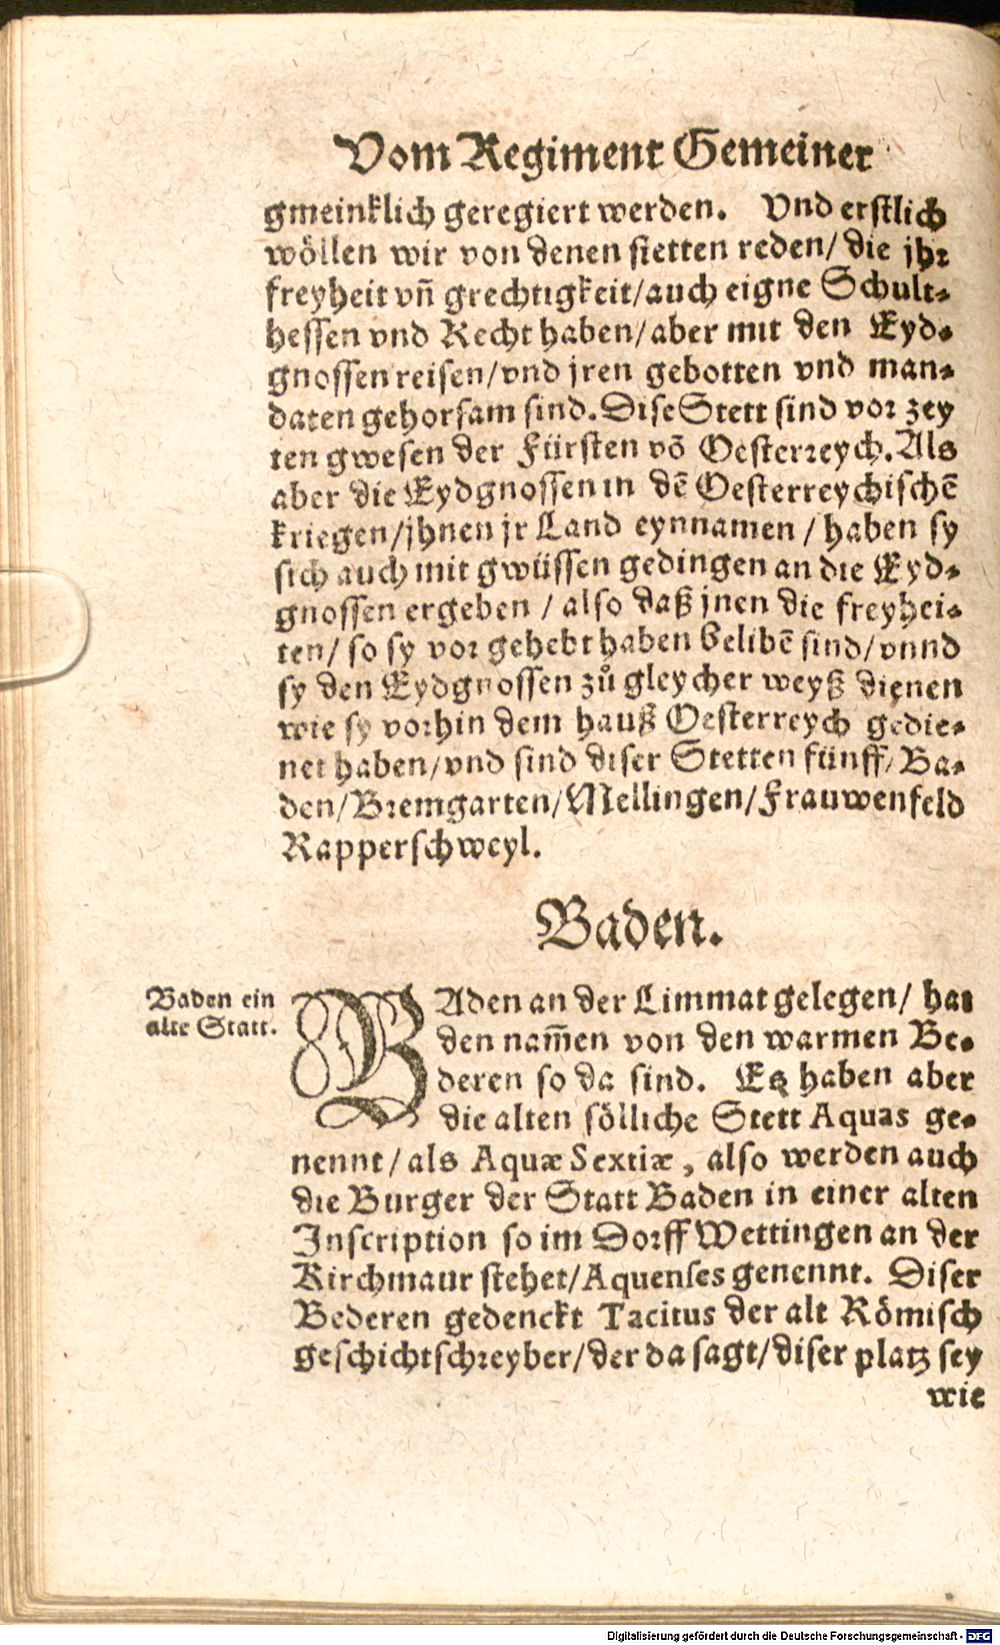 Vom Regiment Gemeiner
gmeinklich geregiert werden. Vnd erstlich
wöllen wir von denen stetten reden/ die jhr
freyheit vñ grechtigkeit/auch eigne Schult-
hessen vnd Recht haben/aber mit den Eyd-
gnossen reisen/vnd jren gebotten vnd man-
daten gehorsam sind. Dise Stett sind vor zey
ten gwesen der Fürsten võ Oesterreych. Als
aber die Eydgnossen in dẽ Oesterreychischẽ
kriegen/jhnen jr Land eynnamen / haben sy
sich auch mit gwüssen gedingen an die Eyd-
gnossen ergeben / also daß jnen die freyhei-
ten/ so sy vor gehebt haben belibẽ sind/ vnnd
sy den Eydgnossen zů gleycher weyß dienen
wie sy vorhin dem hauß Oesterreych gedie-
net haben/vnd sind diser Stetten fünff/ Ba-
den/Bremgarten/Mellingen/Frauwenfeld
Rapperschweyl.
Baden.
Baden ein
alte Statt.
BAden an der Limmat gelegen/ hat
den nam̃en von den warmen Be-
deren so da sind. Es haben aber
die alten sölliche Stett Aquas ge-
nennt/als Aquæ Sextiæ, also werden auch
die Burger der Statt Baden in einer alten
Inscription so im Dorff Wettingen an der
Kirchmaur stehet/Aquenses genennt. Diser
Bederen gedenckt Tacitus der alt Römisch
geschichtschreyber/der da sagt/diser platz sey
wie
Digitalisierung gefördert durch die Deutsche Forschungsgemeinschaft - DFG